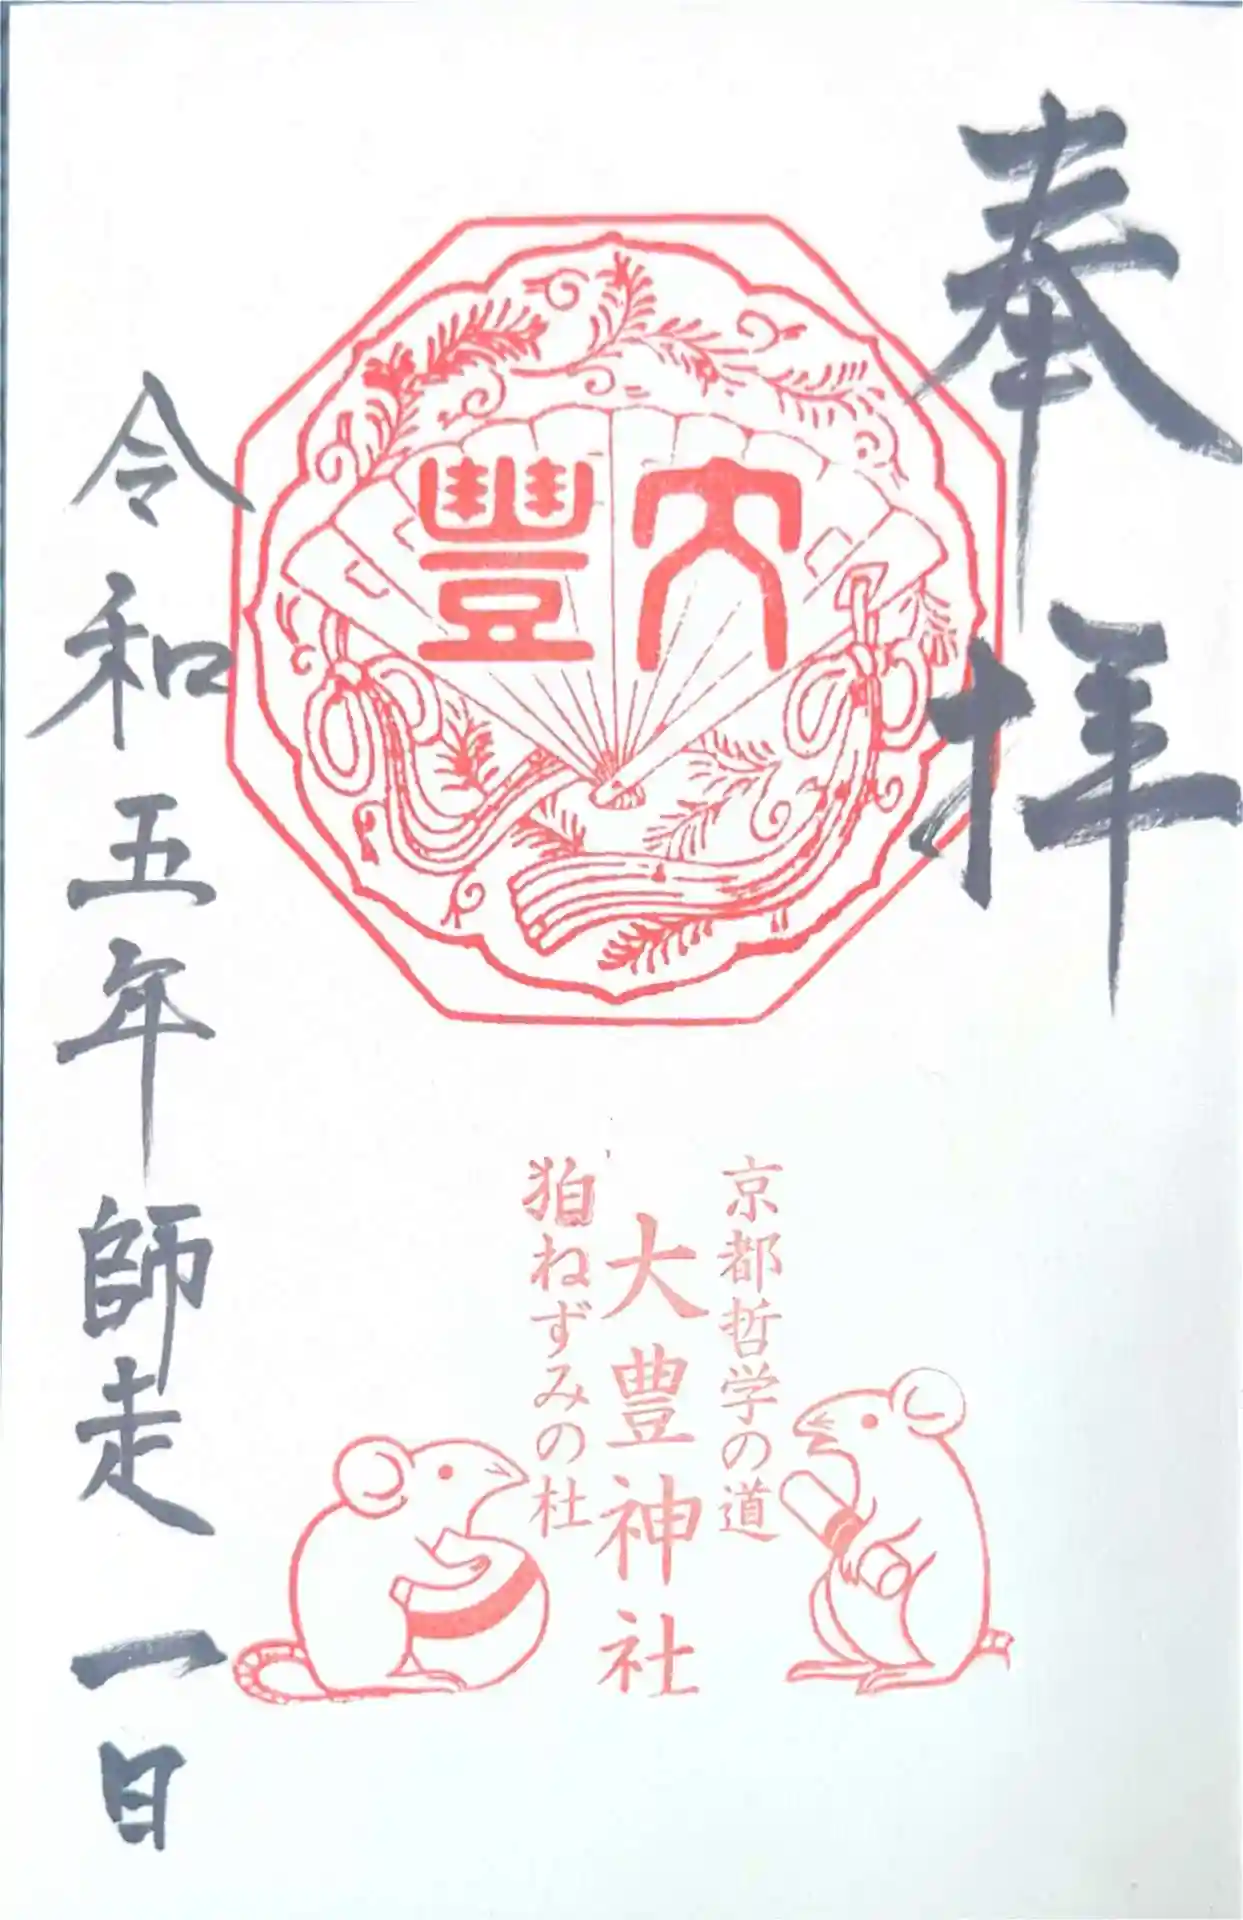 奉拝
大豊
京都哲学の道
大豊神社
狛ねずみの杜
令和五年師走一日